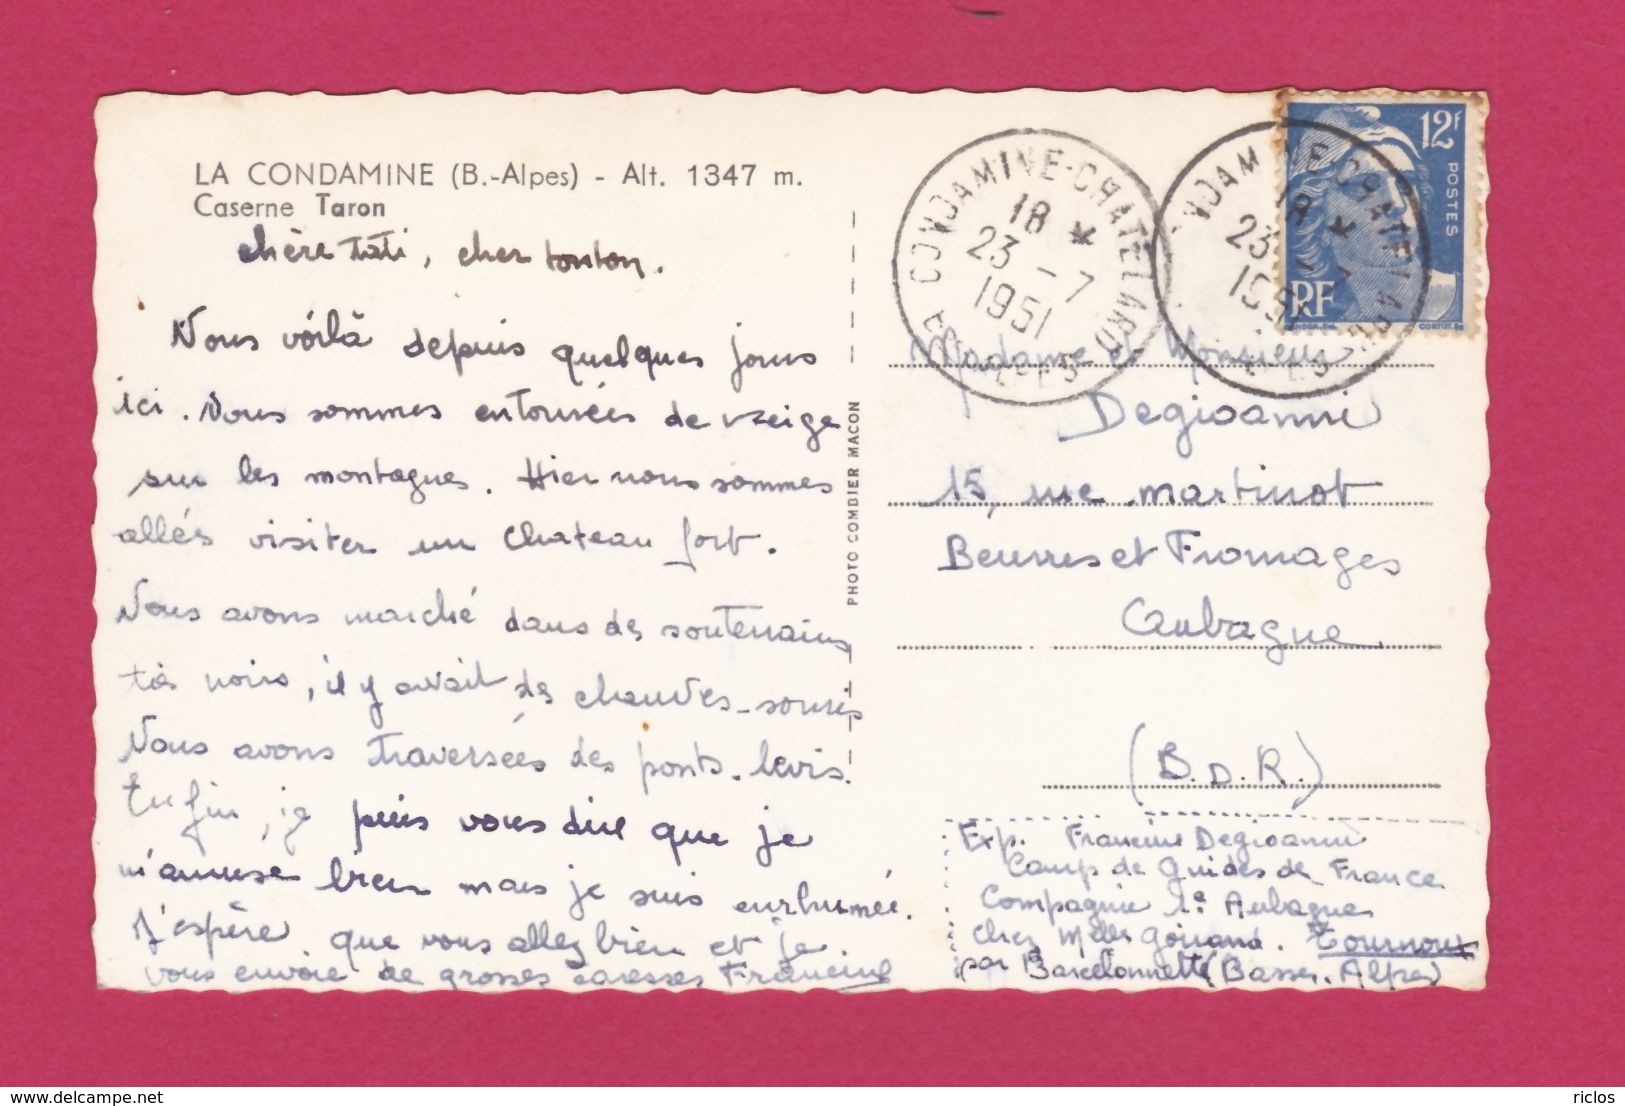 LA CONDAMINE (B.-Alpes) - Alt. 1347 m.
Caserne Taron
chère Tati, cher tonton.
Nous voilà depuis quelques jours
ici. Nous sommes entourées de neige
sur les montagnes. Hier nous sommes
allés visiter un chateau fort.
Nous avons marché dans des souterrains
très noirs, il y avait des chauves-souris
Nous avons traversées des ponts-levis.
Enfin, je puis vous dire que je
m'amuse bien mais je suis enrhumée.
J'espère que vous allez bien et je
vous envoie de grosses caresses Francine
PHOTO COMBIER MACON
CONDAMINE-CHATELARD
18 *
23 - 7
1951
BSES ALPES
12F
POSTES
RF
Madame et Monsieur
Degioanni
15, rue martinot
Beurres et Fromages
Aubagne
(B.D.R.)
Exp. Francine Degioanni
Camp de Guides de France
Compagnie 1e Aubagne
chez Melles Goirand. Tournoux
par Barcelonnette (Basses-Alpes)
delcampe.net
riclos